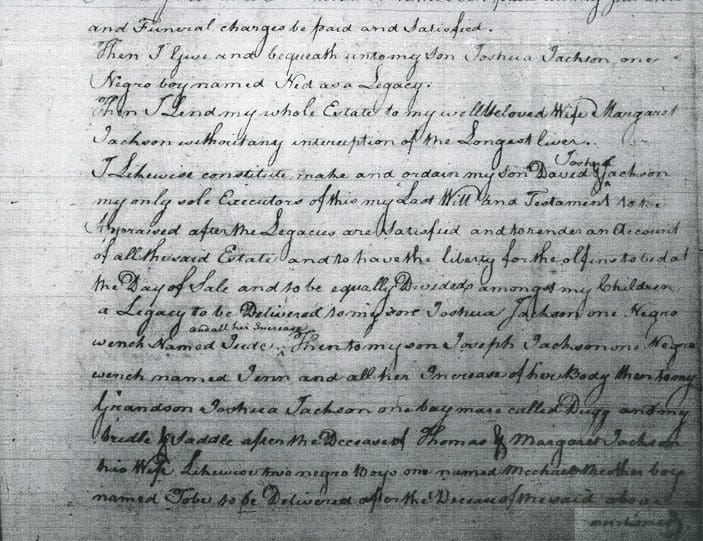 and Funeral charges be paid and Satisfied.
Then I Give and bequeath unto my Son Joshua Jackson, one
Negro boy named Ned as a Legacy.
Then I Lend my whole Estate to my well beloved Wife Margaret
Jackson without any interuption of the Longest liver.
Joshua
I Likewise constitute make and ordain my son David & Jackson
my only sole Executors of this my Last Will and Testament to be
Apraised after the Legacies are Satisfied and to render an Account
of all the said Estate and to have the liberty for the to bid at
the Day of Sale and to be equally Divided amongst my Children
a Legacy to be Delivered to my son Joshua Jackson one Negro
and all her Increase
wench Named Then to my son Joseph Jackson one Negro
wench named Jenn and all her Increase of her Body then to my
Grandson Joshua Jackson one bay mare called Dugg and my
bridle & Saddle after the Decease of Thomas & Margaret Jackson
his Wife Likewise two negro Boys one named the other boy
named Tobe to be Delivered after the Decease of the said above
mentioned